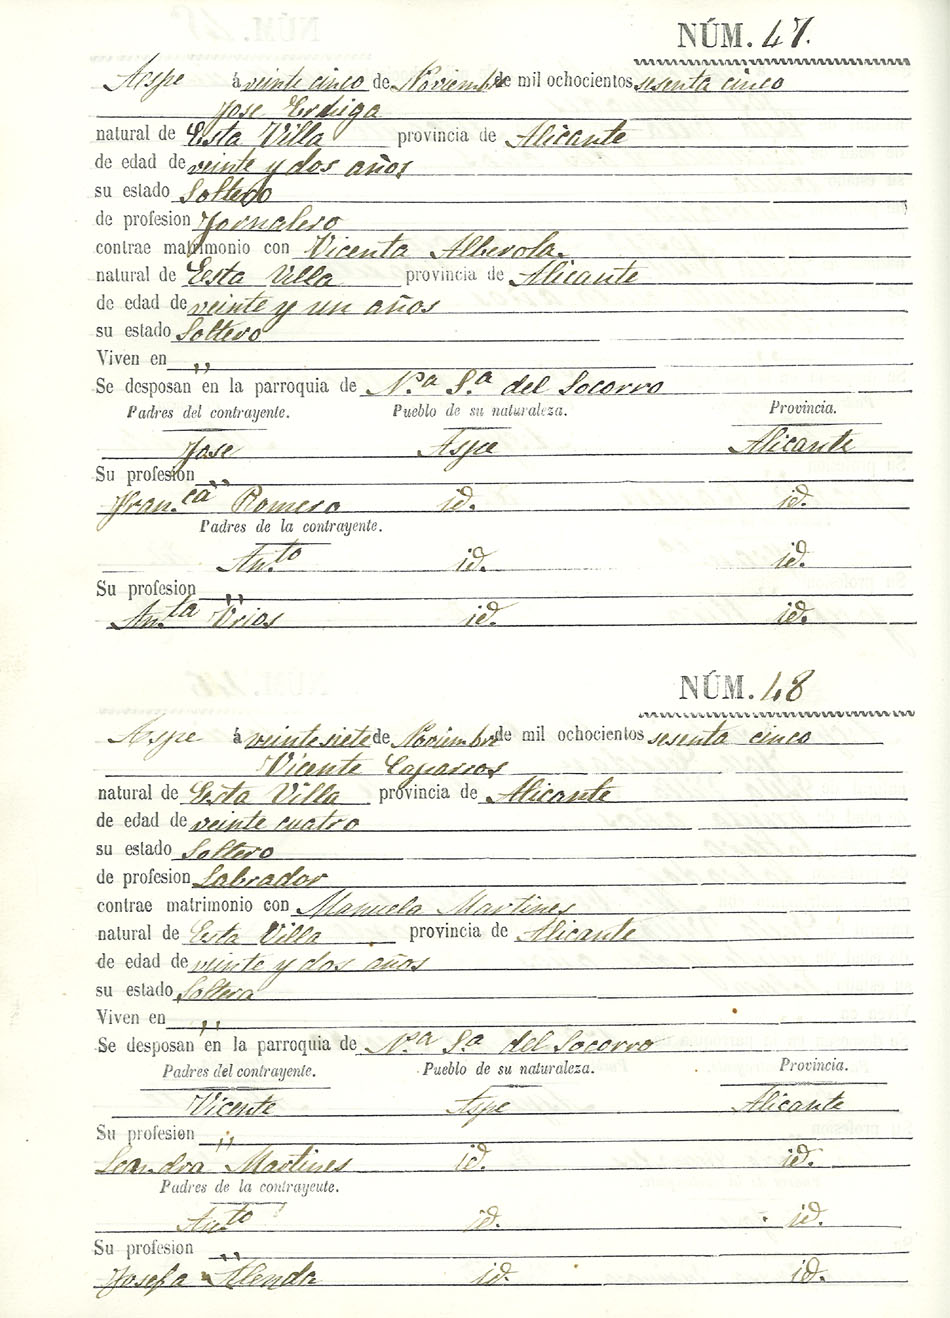 NÚM. 47.
Aspe á veinte cinco de Noviembre de mil ochocientos sesenta cinco
Jose Erdiga
natural de Esta Villa provincia de Alicante
de edad de veinte y dos años
su estado Soltero
de profesion Jornalero
contrae matrimonio con Vicenta Alberola.
natural de Esta Villa provincia de Alicante
de edad de veinte y un años
su estado Soltero
Viven en ,,
Se desposan en la parroquia de N.ª S.ª del Socorro
Padres del contrayente. Pueblo de su naturaleza. Provincia.
Jose Aspe Alicante
Su profesion ,,
Fran.ca Romero id. id.
Padres de la contrayente.
An.to id. id.
Su profesion ,,
An.ta Urios id. id.
NÚM. 48
Aspe á veinte siete de Noviembre de mil ochocientos sesenta cinco
Vicente Caparros
natural de Esta Villa provincia de Alicante
de edad de veinte cuatro
su estado Soltero
de profesion Labrador
contrae matrimonio con Manuela Martines
natural de Esta Villa provincia de Alicante
de edad de veinte y dos años
su estado Soltera
Viven en ,,
Se desposan en la parroquia de N.ª S.ª del Socorro
Padres del contrayente. Pueblo de su naturaleza. Provincia.
Vicente Aspe Alicante
Su profesion ,,
Leandra Martines id. id.
Padres de la contrayente.
An.to id. id.
Su profesion ,,
Josefa Alenda id. id.